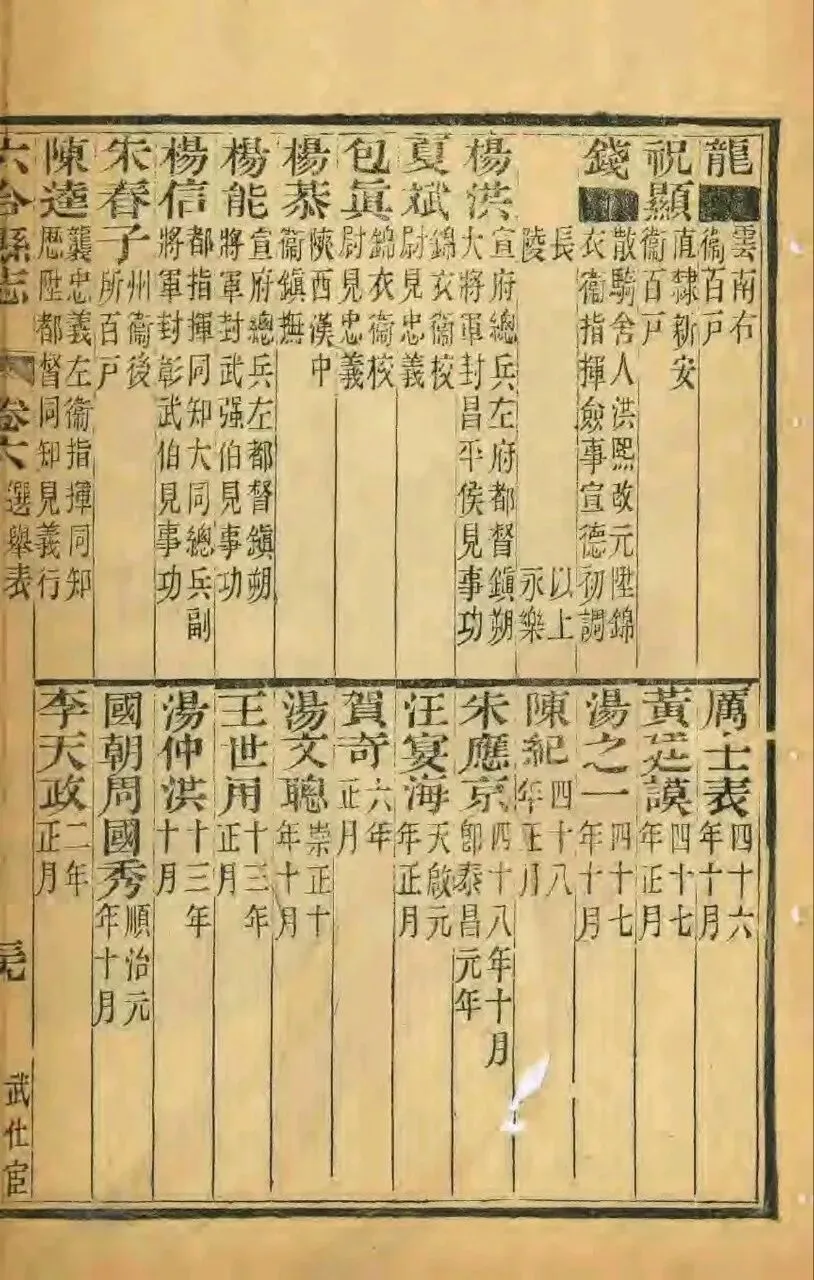 龍
雲南右
衞百戶
祝顯
直隸新安
衞百戶
錢
散騎舍人洪熙改元陞錦
衣衞指揮僉事宣德初調
長 以上
陵 永樂
楊洪
宣府總兵左府都督鎮朔
大將軍封昌平侯見事功
夏斌
錦衣衞校
尉見忠義
包眞
錦衣衞校
尉見忠義
楊恭
陝西漢中
衞鎮撫
楊能
宣府總兵左都督鎮朔
將軍封武强伯見事功
楊信
都指揮同知大同總兵副
將軍封彰武伯見事功
朱春子
州衞後
所百戶
陳逵
襲忠義左衞指揮同知
歷陞都督同知見義行
厲士表
四十六
年十月
黃廷謨
四十七
年正月
湯之一
四十七
年十月
陳紀
四十八
年正月
朱應京
四十八年十月
卽泰昌元年
汪宴海
天啟元
年正月
賀奇
六年
正月
湯文聰
崇正十
年十月
王世用
十三年
正月
湯仲洪
十三年
十月
國朝周國秀
順治元
年十月
李天政
二年
正月
六合縣志 卷六 選舉表 武仕宦